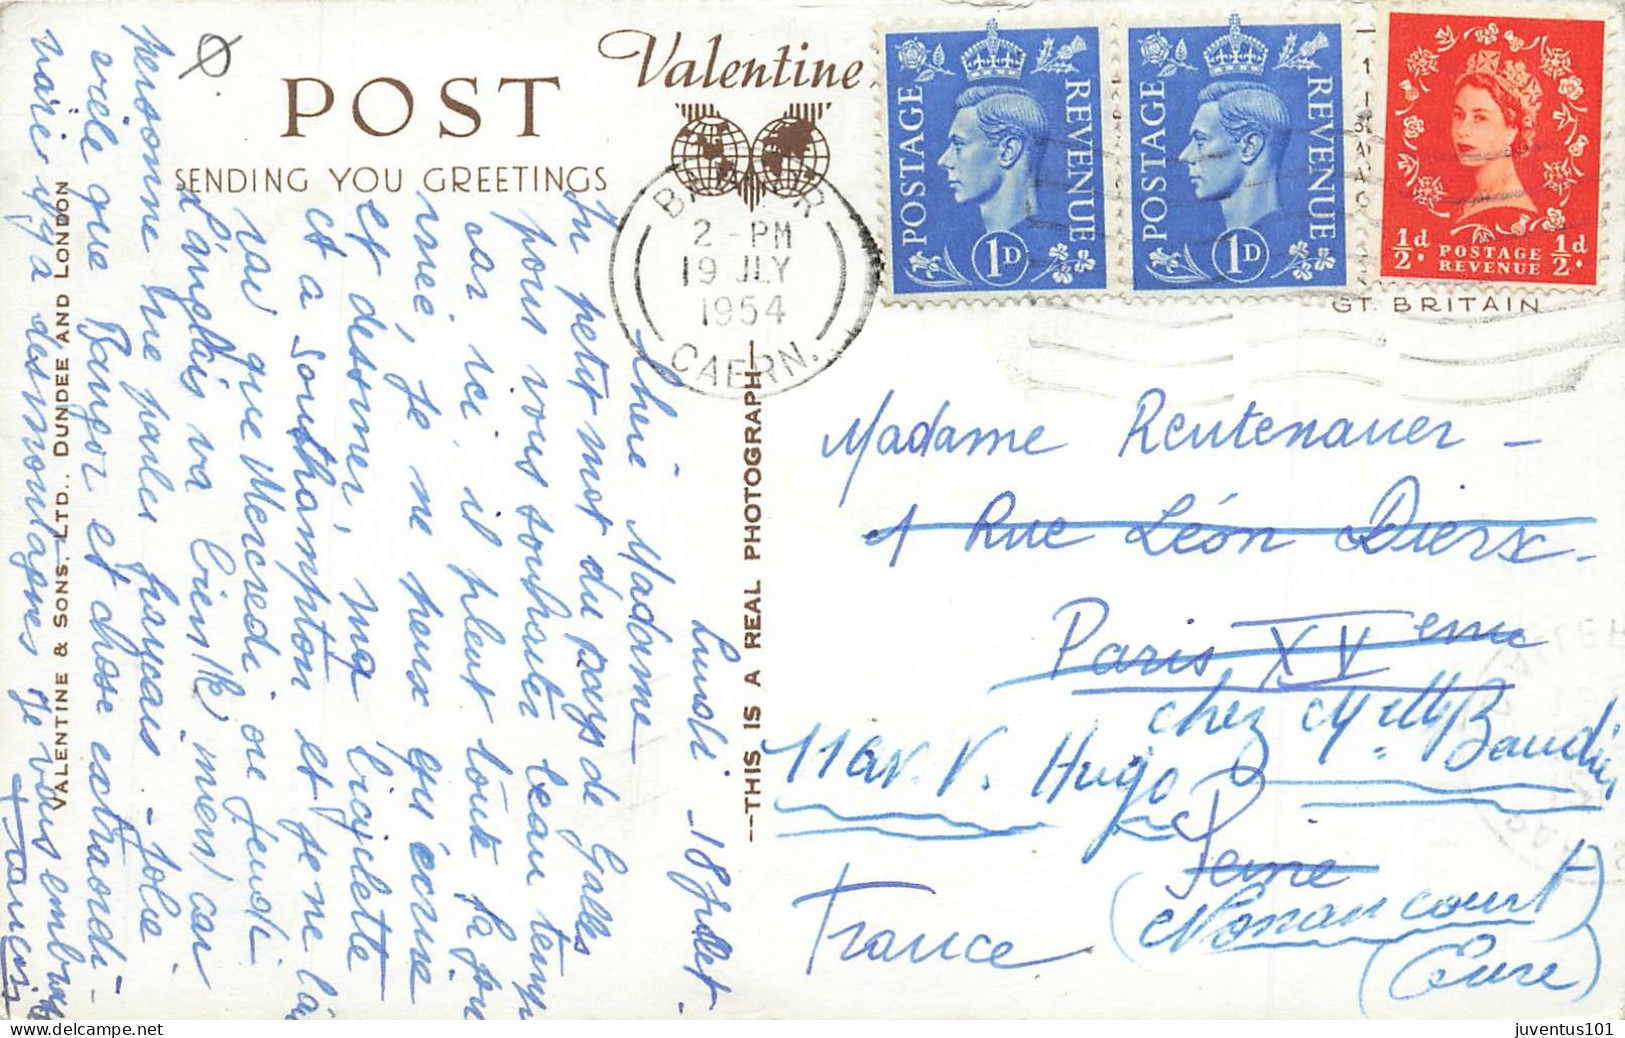 POST
SENDING YOU GREETINGS
Valentine
POSTAGE REVENUE
1D
POSTAGE REVENUE
1D
½d. POSTAGE REVENUE ½d.
GT. BRITAIN
BANGOR
2 - PM
19 JLY
1954
CAERN.
VALENTINE & SONS, LTD., DUNDEE AND LONDON
---THIS IS A REAL PHOTOGRAPH---
Lundi - 18 Juillet -
Chère Madame
Un petit mot du pays de Galles
pour vous souhaiter beau temps
car ici, il pleut toute la
Je ne peux qu'écrire
et dessiner, ma bicyclette
est à Southampton et je ne l'
que Mercredi ou Jeudi
L'anglais va bien (le mien) car
personne ne parle français - Jolie
ville que Bangor et chose extraordi-
naire, il y a des montagnes. Je vous embrasse
Francis
Madame Reutenauer -
1 Rue Léon Dierx -
Paris XVeme
chez Melle Baudin
11 av. V. Hugo
Seine
France
(Nonancourt)
(Eure)
juventus101